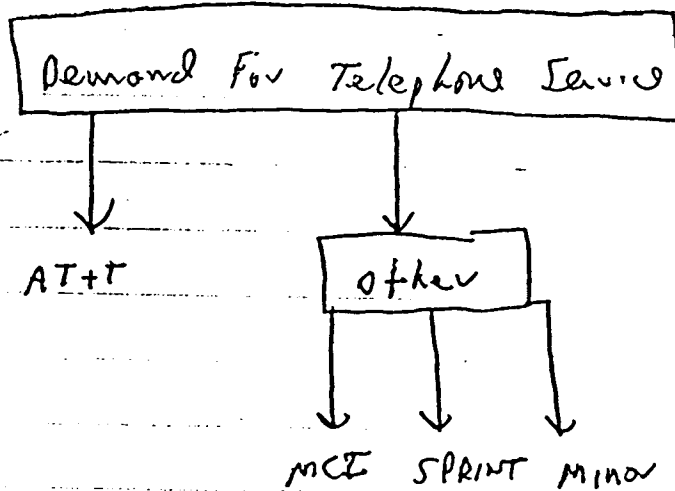 Demand For Telephone Service
AT+T
other
MCI SPRINT Minor